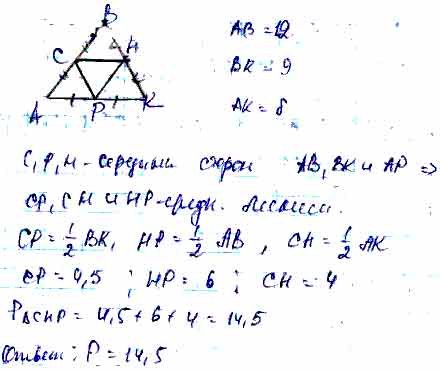 B
C H
A P K
AB = 12
BK = 9
AK = 8
C, P, H - середины сторон AB, BK и AP =>
CP, CH и HP - средн. линии.
CP = 1/2 BK, HP = 1/2 AB, CH = 1/2 AK
CP = 4,5 ; HP = 6 ; CH = 4
P△CHP = 4,5 + 6 + 4 = 14,5
Ответ: P = 14,5